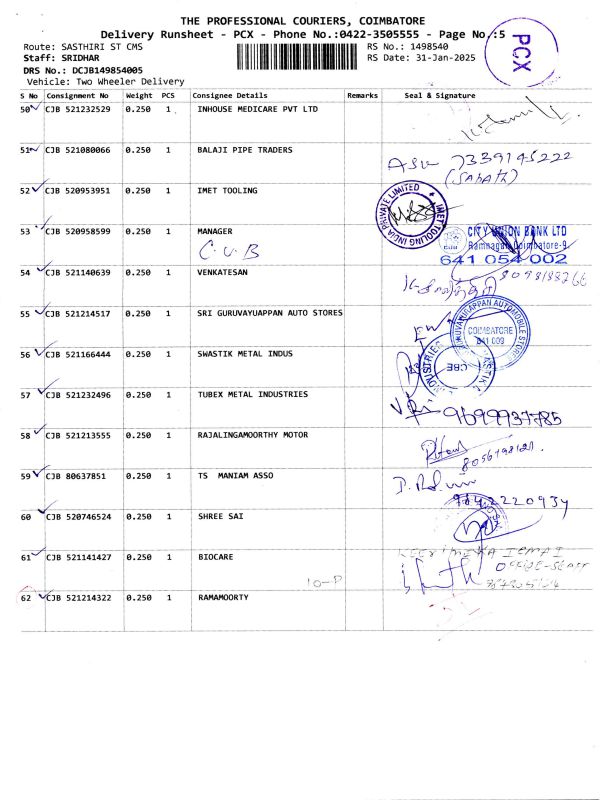 THE PROFESSIONAL COURIERS, COIMBATORE
Delivery Runsheet - PCX - Phone No.:0422-3505555 - Page No.:5
Route: SASTHIRI ST CMS
RS No.: 1498540
Staff: SRIDHAR
RS Date: 31-Jan-2025
DRS No.: DCJB149854005
Vehicle: Two Wheeler Delivery
PCX
S No Consignment No Weight PCS Consignee Details Remarks Seal & Signature
50 CJB 521232529 0.250 1 INHOUSE MEDICARE PVT LTD
51 CJB 521080066 0.250 1 BALAJI PIPE TRADERS
7339145222
52 CJB 520953951 0.250 1 IMET TOOLING
IMET TOOLING INDIA PRIVATE LIMITED
53 CJB 520958599 0.250 1 MANAGER
C.U.B
CITY UNION BANK LTD
Ramnagar Coimbatore-9
641 054 002
54 CJB 521140639 0.250 1 VENKATESAN
55 CJB 521214517 0.250 1 SRI GURUVAYUAPPAN AUTO STORES
COIMBATORE
641 009
56 CJB 521166444 0.250 1 SWASTIK METAL INDUS
CBE
57 CJB 521232496 0.250 1 TUBEX METAL INDUSTRIES
58 CJB 521213555 0.250 1 RAJALINGAMOORTHY MOTOR
59 CJB 80637851 0.250 1 TS MANIAM ASSO
60 CJB 520746524 0.250 1 SHREE SAI
61 CJB 521141427 0.250 1 BIOCARE
62 CJB 521214322 0.250 1 RAMAMOORTY